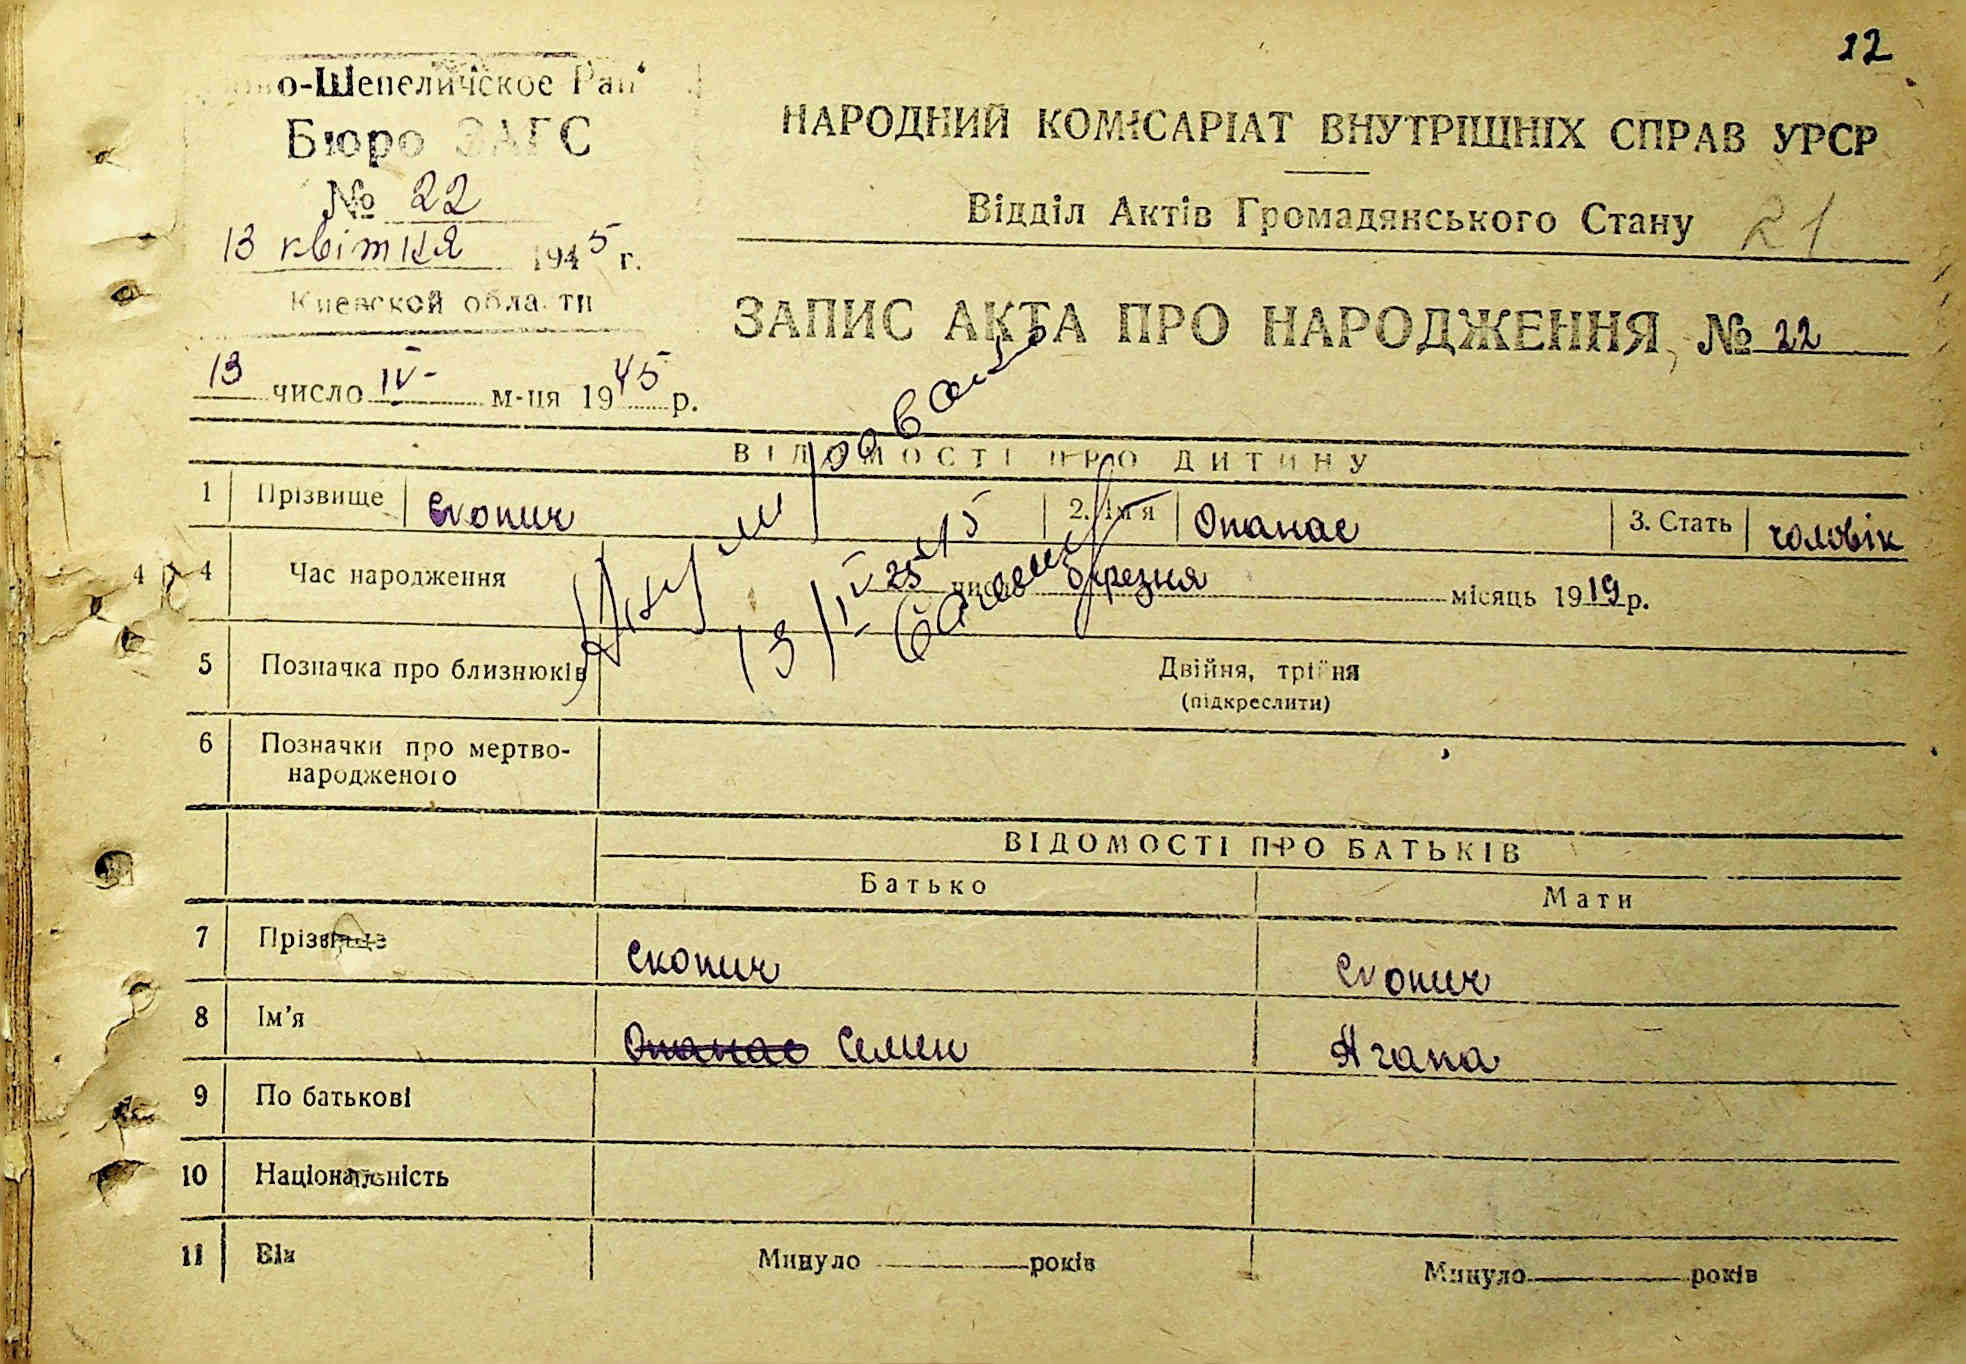 12
о-Шепеличское Рай
Бюро ЗАГС
№ 22
13 квітня 1945 г.
Киевской области
НАРОДНИЙ КОМІСАРІАТ ВНУТРІШНІХ СПРАВ УРСР
Відділ Актів Громадянського Стану 21
ЗАПИС АКТА ПРО НАРОДЖЕННЯ № 22
13 число IV- м-ця 1945 р.
ВІДОМОСТІ ПРО ДИТИНУ
1 Прізвище Скопич 2. Ім'я Опанас 3. Стать чоловік
4 4 Час народження 25 число березня місяць 1919 р.
13/IV-45
5 Позначка про близнюків Двійня, трійня
(підкреслити)
6 Позначки про мертво-
народженого
ВІДОМОСТІ ПРО БАТЬКІВ
Батько Мати
7 Прізвище Скопич Скопич
8 Ім'я Опанас Семен Агапа
9 По батькові
10 Національність
11 Вік Минуло років Минуло років